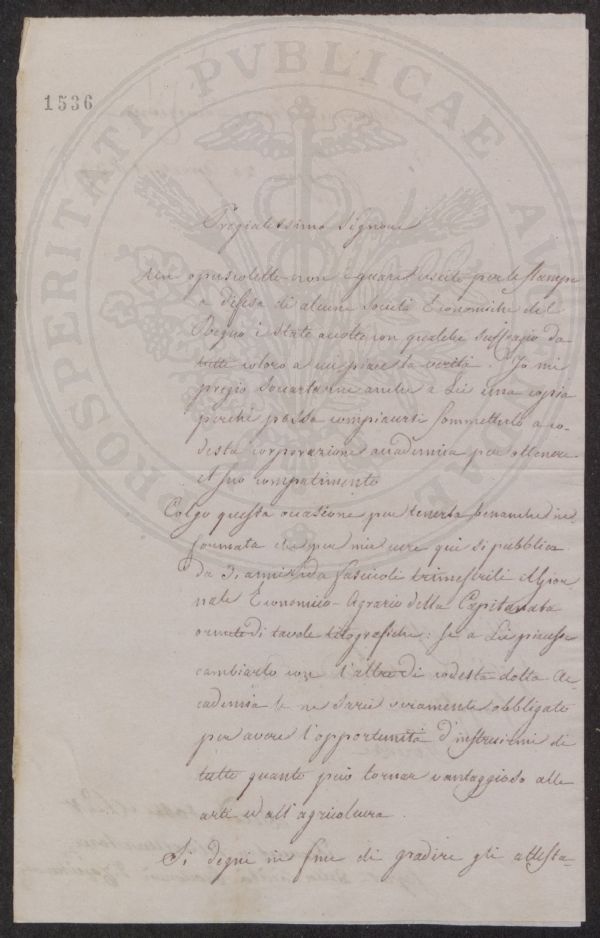 PROSPERITATI PVBLICAE AVGENDAE
1536
Pregiatissimo Signore
Un opuscoletto non è guari uscito per le stampe
a difesa di alcune Società Economiche del
Regno è stato accolto con qualche suffragio da
tutti coloro a cui piace la verità. Io mi
pregio inviarne anche a Lei una copia
perchè possa compiacersi sommetterlo a co-
desta corporazione accademica per ottenere
il suo compatimento
Colgo questa occasione per tenerla benanche in-
formata che per mie cure qui si pubblica
da 3. anni in da fascicoli trimestrili il Gior-
nale Economico-Agrario della Capitanata
ornato di tavole litografiche: se a Lei piacesse
cambiarlo con l'altro di codesta dotta Ac-
cademia le ne sarei veramente obbligato
per avere l'opportunità d'instruirmi di
tutto quanto può tornar vantaggioso alle
arti ed all'agricoltura.
Si degni in fine di gradire gli attesta-